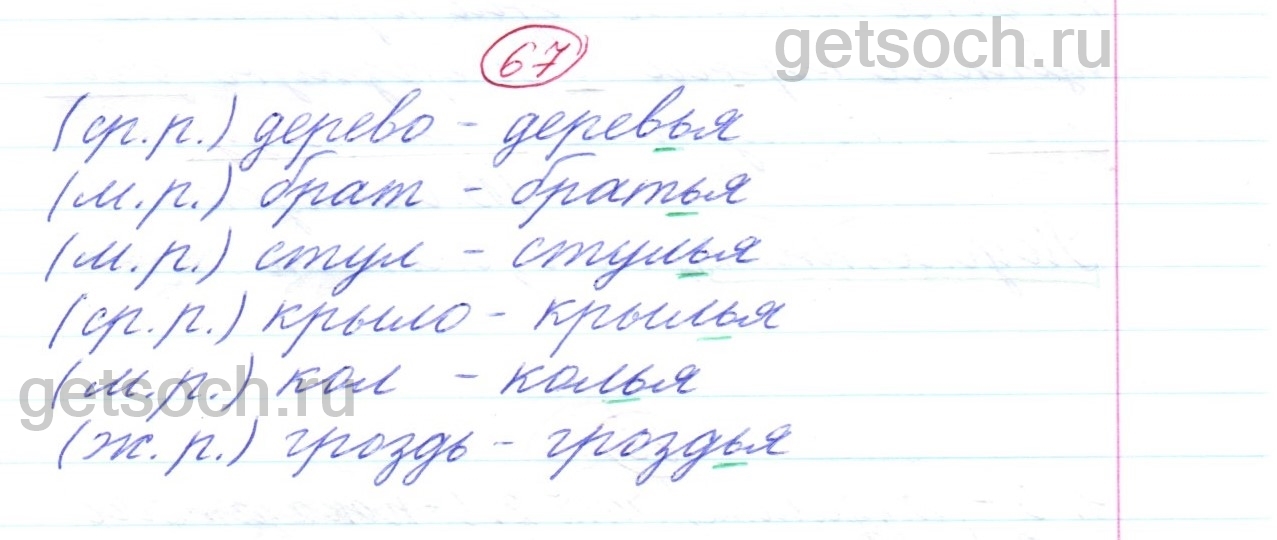 getsoch.ru
67
(ср.р.) дерево - деревья
(м.р.) брат - братья
(м.р.) стул - стулья
(ср.р.) крыло - крылья
getsoch.ru
(м.р.) кол - колья
(ж.р.) гроздь - гроздья